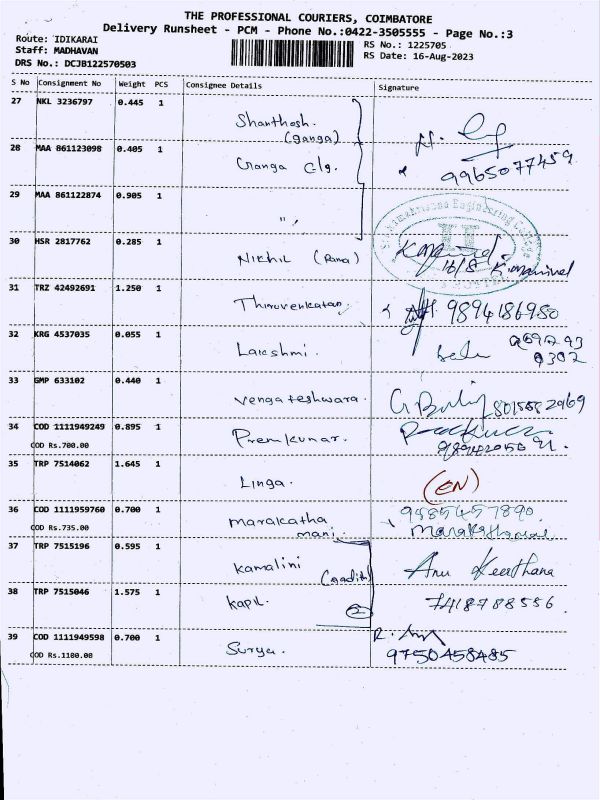 THE PROFESSIONAL COURIERS, COIMBATORE
Delivery Runsheet - PCM - Phone No.:0422-3505555 - Page No.:3
Route: IDIKARAI RS No.: 1225705
Staff: MADHAVAN RS Date: 16-Aug-2023
DRS No.: DCJB122570503
S No Consignment No Weight PCS Consignee Details Signature
27 NKL 3236797 0.445 1 Shanthosh.
(ganga)
28 MAA 861123098 0.405 1 Ganga Clg. 9965077459
29 MAA 861122874 0.905 1 "
Engineering College
30 HSR 2817762 0.285 1 Nikhil (Rama) 16/8 K.manivel
31 TRZ 42492691 1.250 1 Thiruvenkatan 9894186980
32 KRG 4537035 0.055 1 Lakshmi.
33 GMP 633102 0.440 1 Vengateshwara.
34 COD 1111949249 0.895 1 Premkumar.
COD Rs.700.00
35 TRP 7514062 1.645 1 Linga. (EN)
36 COD 1111959760 0.700 1 marakatha 9585457890
COD Rs.735.00 mani.
37 TRP 7515196 0.595 1 Kamalini Anu Keerthana
38 TRP 7515046 1.575 1 Kapil. 2 7418788556.
39 COD 1111949598 0.700 1 Surya.
COD Rs.1100.00 9750458485